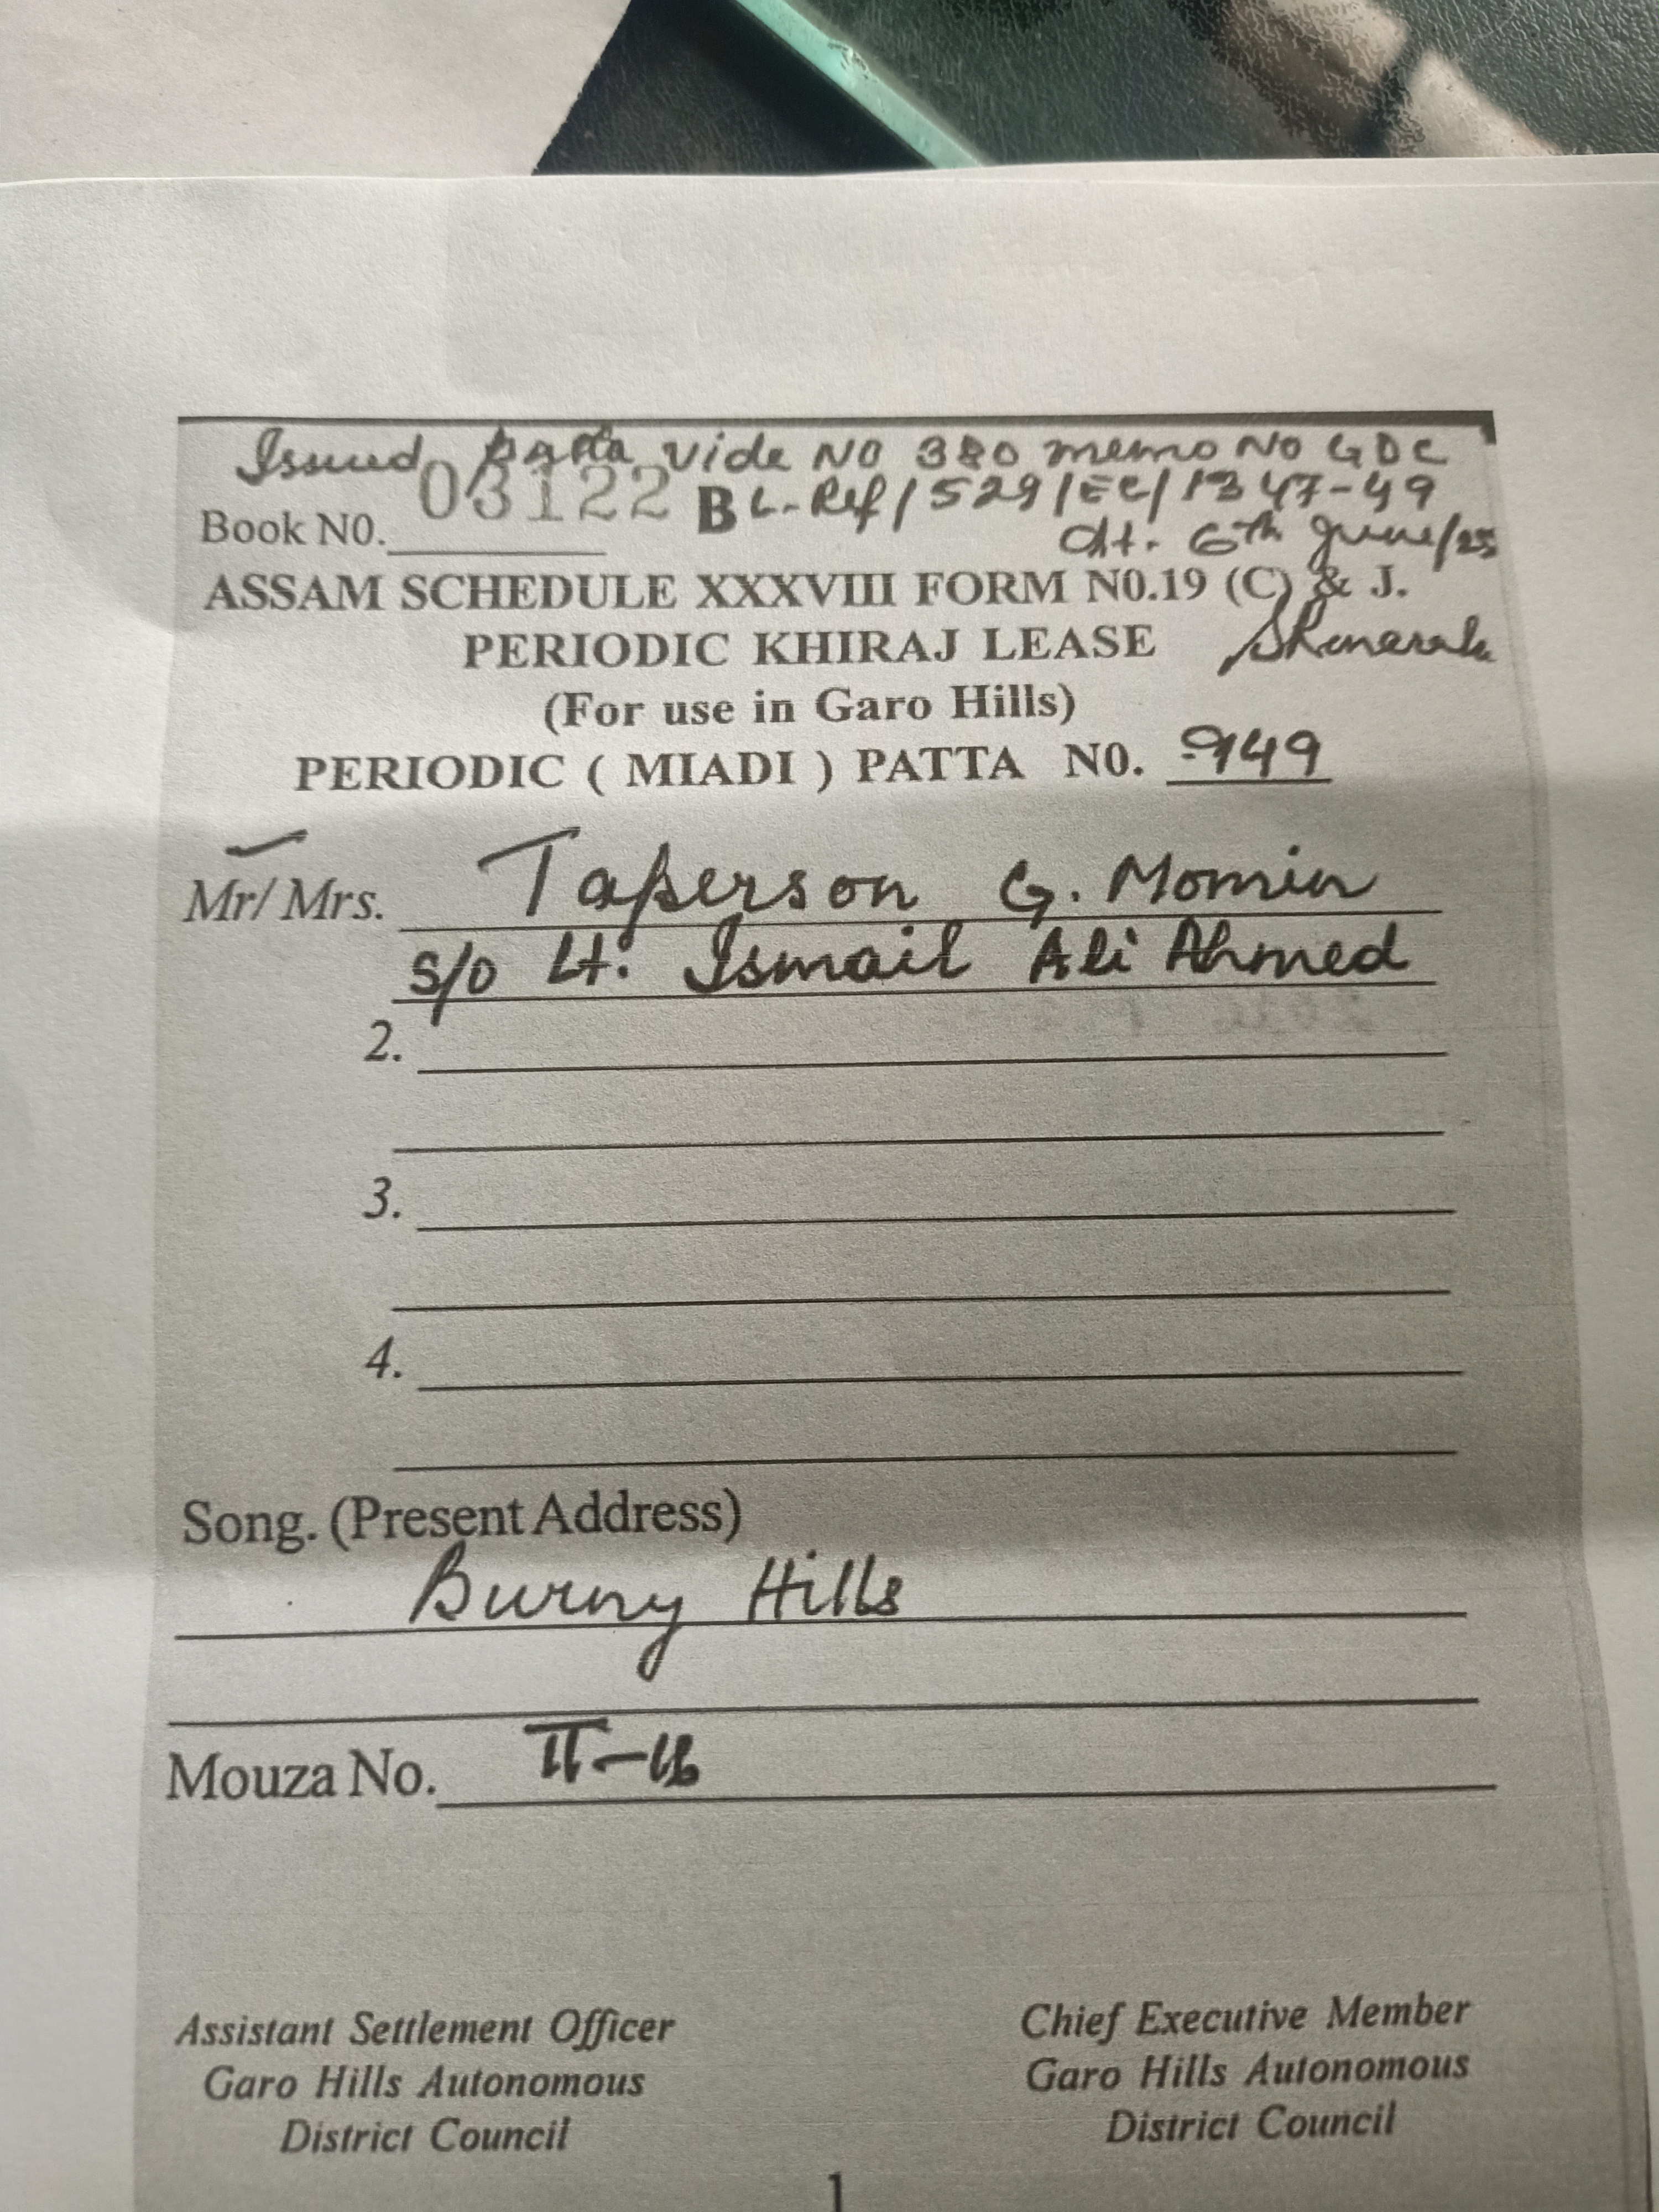 Issued patta vide NO 380 memo No GDC
Book N0. 03122 B L-Ref/529/EC/1347-49
dt. 6th June/25
ASSAM SCHEDULE XXXVIII FORM N0.19 (C) & J.
PERIODIC KHIRAJ LEASE
(For use in Garo Hills)
PERIODIC ( MIADI ) PATTA N0. 949
Mr/ Mrs. Taperson G. Momin
S/o Lt. Ismail Ali Ahmed
2.
3.
4.
Song. (Present Address)
Burny Hills
Mouza No. II-
Assistant Settlement Officer
Garo Hills Autonomous
District Council
Chief Executive Member
Garo Hills Autonomous
District Council
1